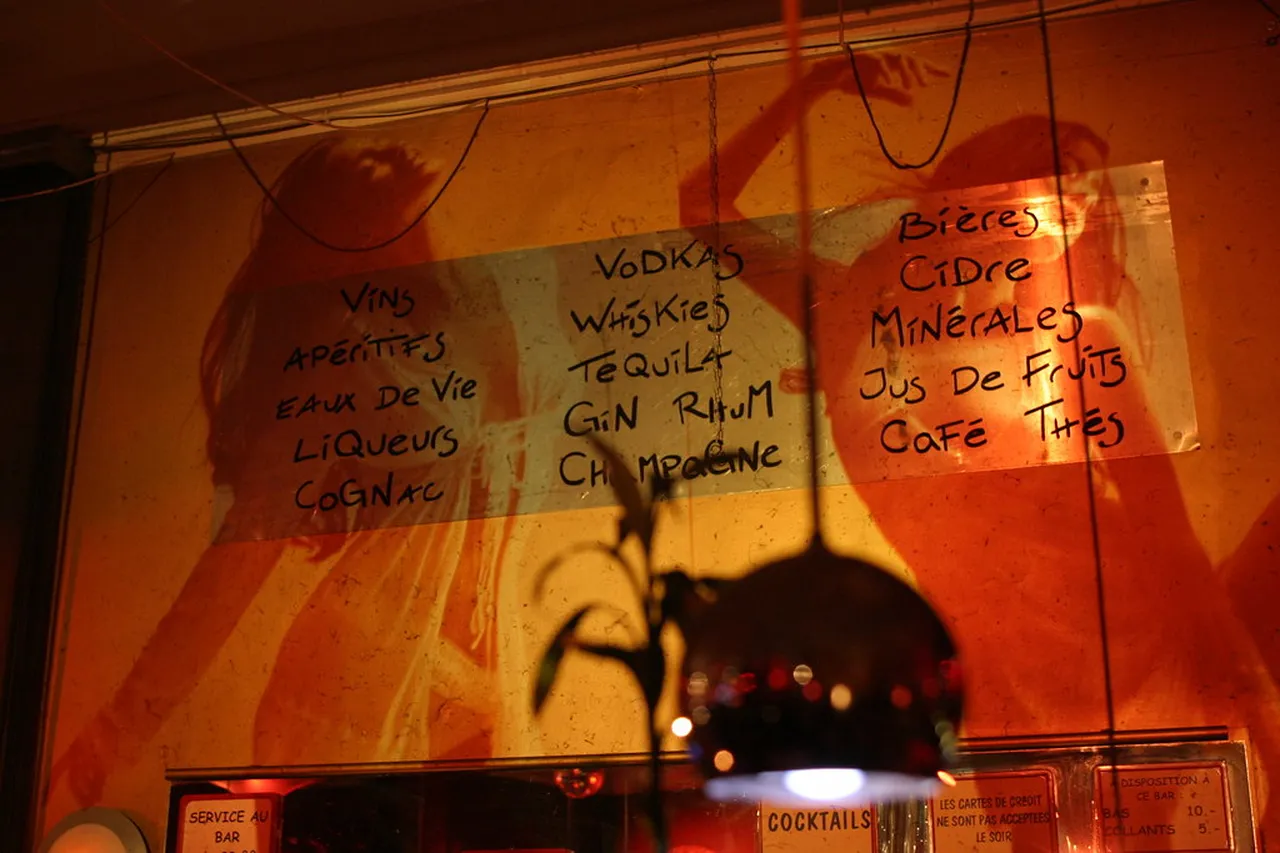 Vins
Apéritifs
Eaux De Vie
Liqueurs
Cognac
Vodkas
Whiskies
Tequila
Gin Rhum
Champagne
Bières
Cidre
Minérales
Jus De Fruits
Café Thés
SERVICE AU
BAR
COCKTAILS
LES CARTES DE CREDIT
NE SONT PAS ACCEPTEES
LE SOIR
A DISPOSITION À
CE BAR :
BAS 10.-
COLLANTS 5.-